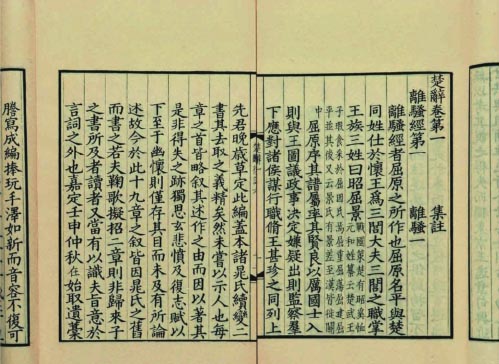 楚辭卷第一 集註
離騷經第一 離騷一
離騷經者屈原之所作也屈原名平與楚
同姓仕於懷王爲三閭大夫三閭之職掌
王族三姓曰昭屈景
戰國策楚有昭奚恤
元和姓纂云楚武王
子瑕食采於屈因氏焉屈重屈蕩屈建屈
平並其後又云景氏有景差至漢皆徙關
中
屈原序其譜屬率其賢良以厲國士入
則與王圖議政事決定嫌疑出則監察羣
下應對諸侯謀行職脩王甚珍之同列上
先君晚歲草定此編蓋本諸晁氏續變二
書其去取之義精矣然未嘗以示人也每
章之首皆略叙其述作之由而因以著其
是非得失之跡獨思玄悲憤及復志賦以
下至于幽懷則僅存其目而未及有所論
述故今於此十九章之叙皆因晁氏之舊
而書之若夫鞠歌擬招二章則非歸來子
之書所及者讀者又當有以識夫旨意於
言詞之外也嘉定壬申仲秋在始取遺藁
謄寫成編捧玩手澤如新而音容不復可